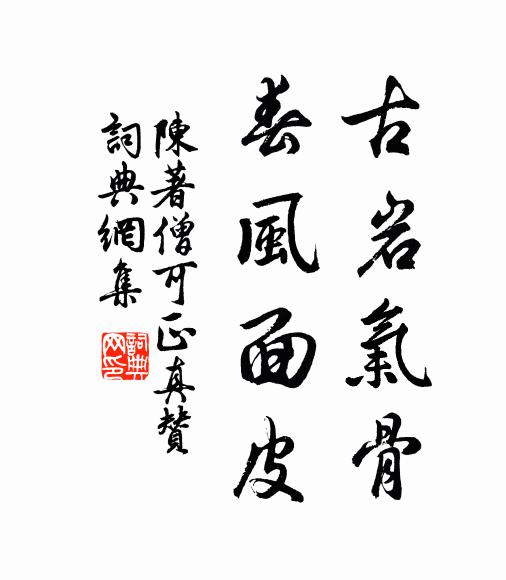 古岩氣骨
春風面皮
陳著僧可正真贊
詞典網集
詞典网印